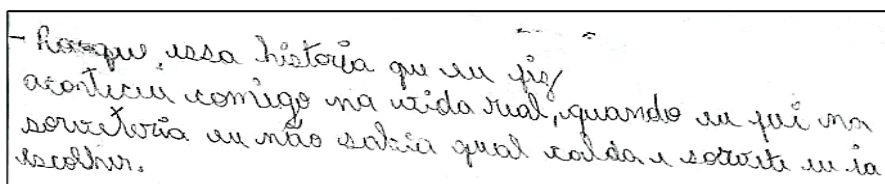 - Porque, essa história que eu fiz
aconteceu comigo na vida real, quando eu fui na
sorveteria eu não sabia qual calda e sorvete eu ia
escolher.